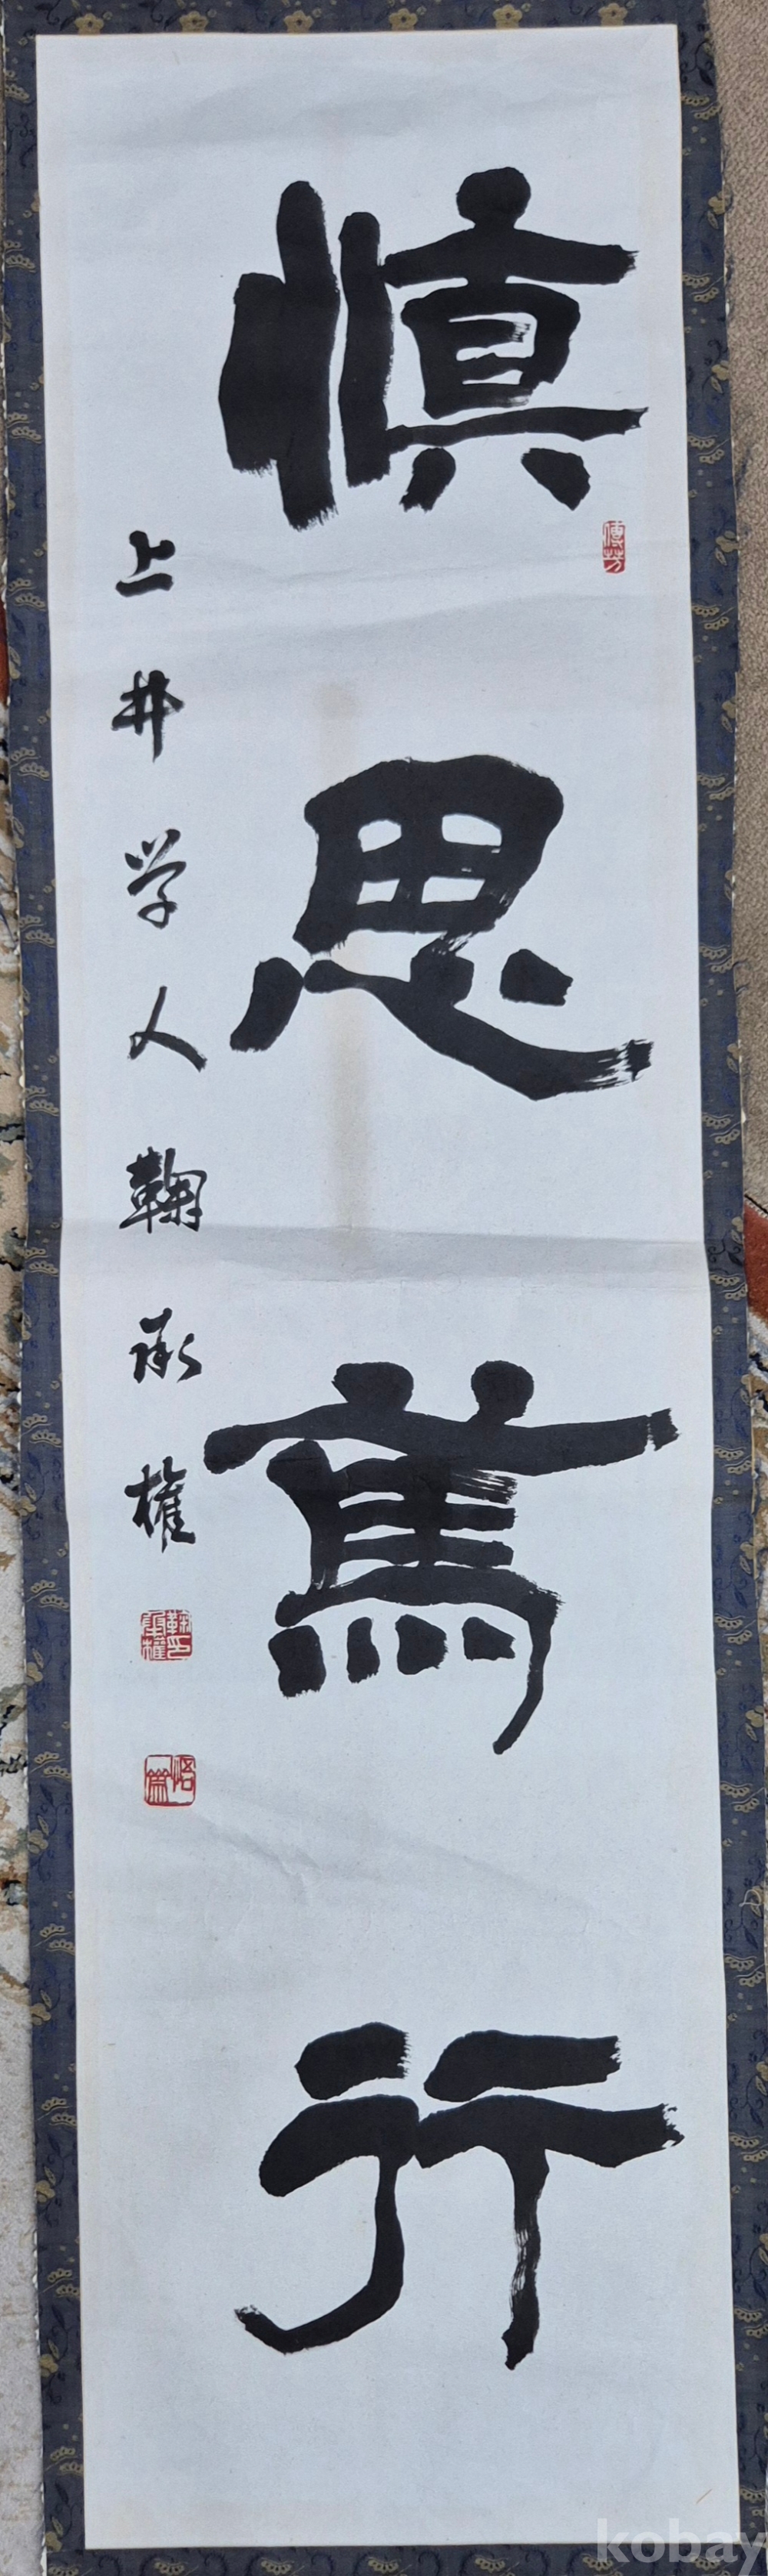 慎思篤行
上井学人鞠承權
傳芳
鞠承權印
kobay